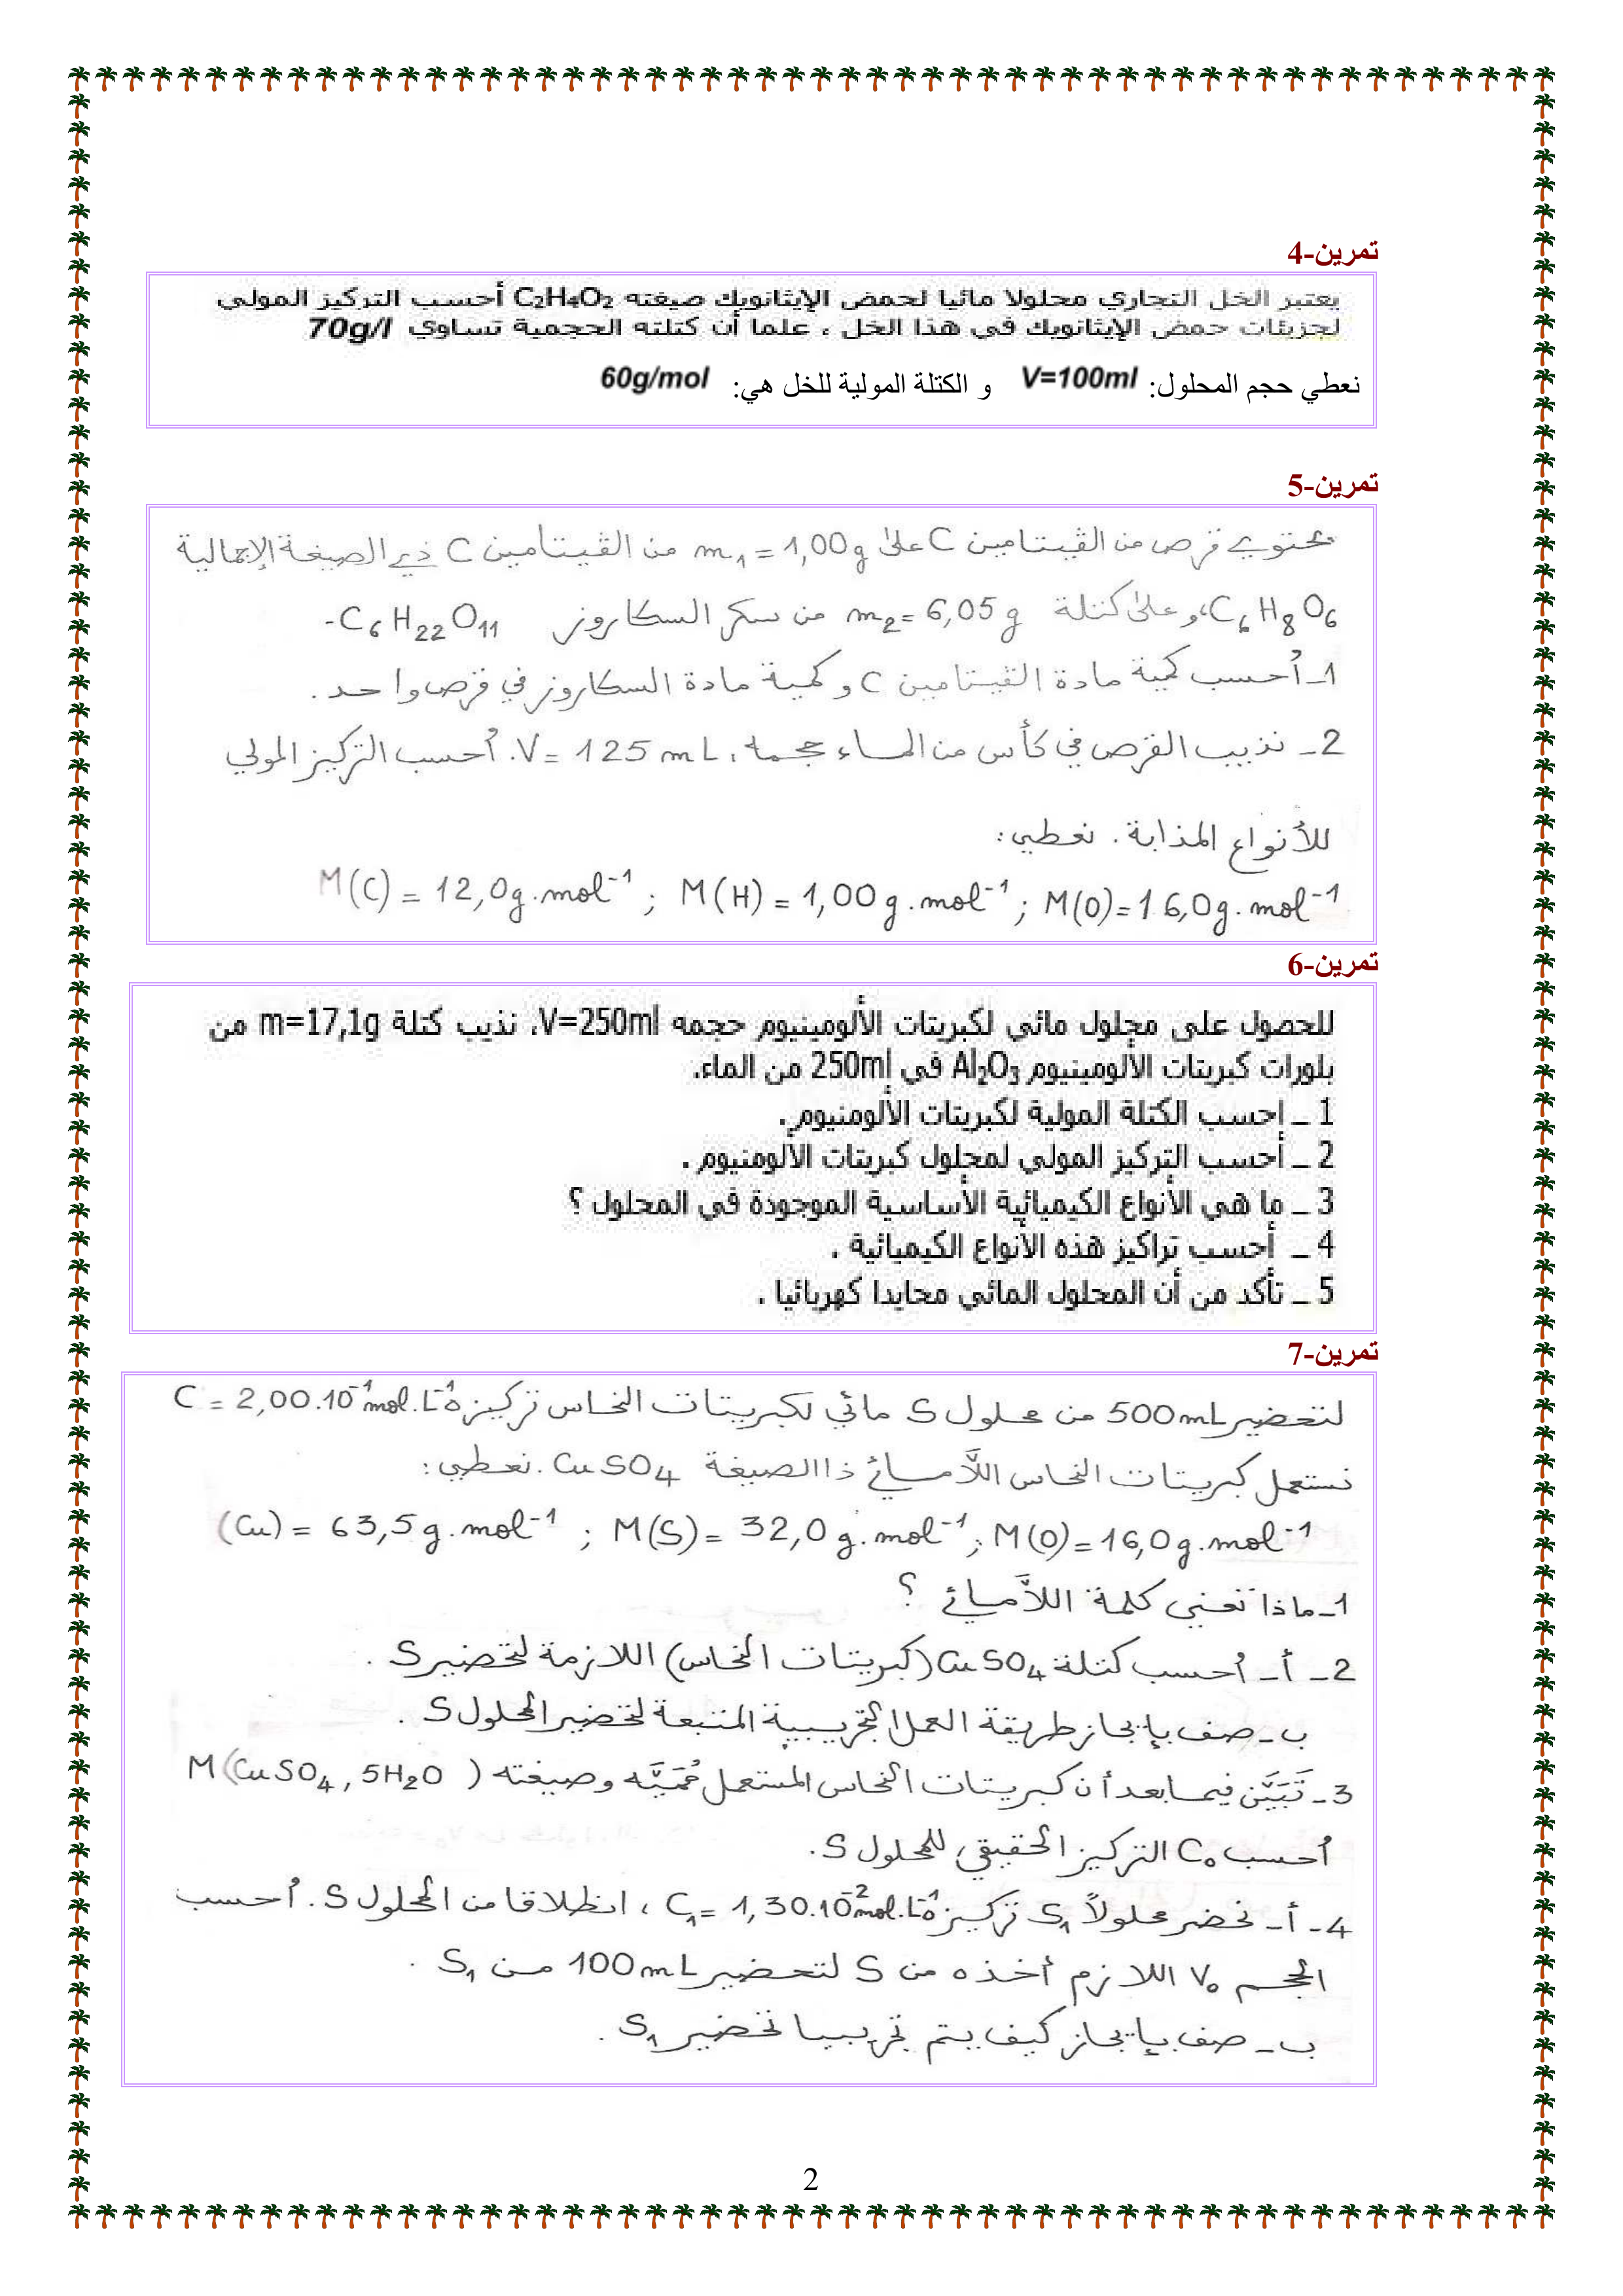 تمرين-4
يعتبر الخل التجاري محلولا مائيا لحمض الإيثانويك صيغته C₂H₄O₂ أحسب التركيز المولي
لجزيئات حمض الإيثانويك في هذا الخل ، علما أن كتلته الحجمية تساوي 70g/l
نعطي حجم المحلول: V=100ml و الكتلة المولية للخل هي: 60g/mol
تمرين-5
يحتوي قرص من الڤيتامين C على m₁ = 1,00g من الڤيتامين C ذي الصيغة الإجمالية
C₆H₈O₆، وعلى كتلة m₂ = 6,05 g من سكر السكاروز C₆H₂₂O₁₁.
1- أحسب كمية مادة الڤيتامين C وكمية مادة السكاروز في قرص واحد.
2- نذيب القرص في كأس من الماء حجمه V = 125 mL. أحسب التركيز المولي
للأنواع المذابة. نعطي:
M(C) = 12,0g.mol⁻¹ ; M(H) = 1,00g.mol⁻¹ ; M(O) = 16,0g.mol⁻¹
تمرين-6
للحصول على محلول مائي لكبريتات الألومينيوم حجمه V=250ml، نذيب كتلة m=17,1g من
بلورات كبريتات الألومينيوم Al₂O₃ في 250ml من الماء.
1 ـ احسب الكتلة المولية لكبريتات الألومنيوم.
2 ـ أحسب التركيز المولي لمحلول كبريتات الألومنيوم .
3 ـ ما هي الأنواع الكيميائية الأساسية الموجودة في المحلول ؟
4 ـ أحسب تراكيز هذه الأنواع الكيميائية .
5 ـ تأكد من أن المحلول المائي محايدا كهربائيا .
تمرين-7
لتحضير 500mL من محلول S مائي لكبريتات النحاس تركيزه C = 2,00.10⁻¹mol.L⁻¹
نستعمل كبريتات النحاس اللاَّمائي ذا الصيغة CuSO₄. نعطي:
(Cu) = 63,5g.mol⁻¹ ; M(S) = 32,0g.mol⁻¹ ; M(O) = 16,0g.mol⁻¹
1- ماذا تعني كلمة اللاَّمائي ؟
2- أ- أحسب كتلة CuSO₄ (كبريتات النحاس) اللازمة لتحضير S.
ب- صف بإيجاز طريقة العمل التجريبية المتبعة لتحضير المحلول S.
3- تَبَيَّن فيما بعد أن كبريتات النحاس المستعمل مُمَيَّه وصيغته M(CuSO₄, 5H₂O )
أحسب C₀ التركيز الحقيقي للمحلول S.
4- أ- نحضر محلولاً S₁ تركيزه C₁ = 1,30.10⁻²mol.L⁻¹ ، انطلاقا من المحلول S. أحسب
الحجم V₀ اللازم أخذه من S لتحضير 100mL من S₁ .
ب- صف بإيجاز كيف يتم تجريبيا تحضير S₁.
2